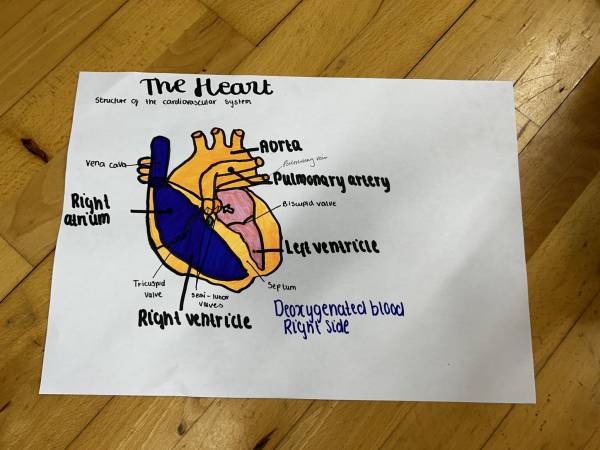 The Heart
Structure of the cardiovascular system
Aorta
Vena cava
Pulmonary vein
Pulmonary artery
Right
atrium
Biscupid valve
Left ventricle
Tricuspid
valve
semi-lunar
valves
Septum
Right ventricle
Deoxygenated blood
Right side